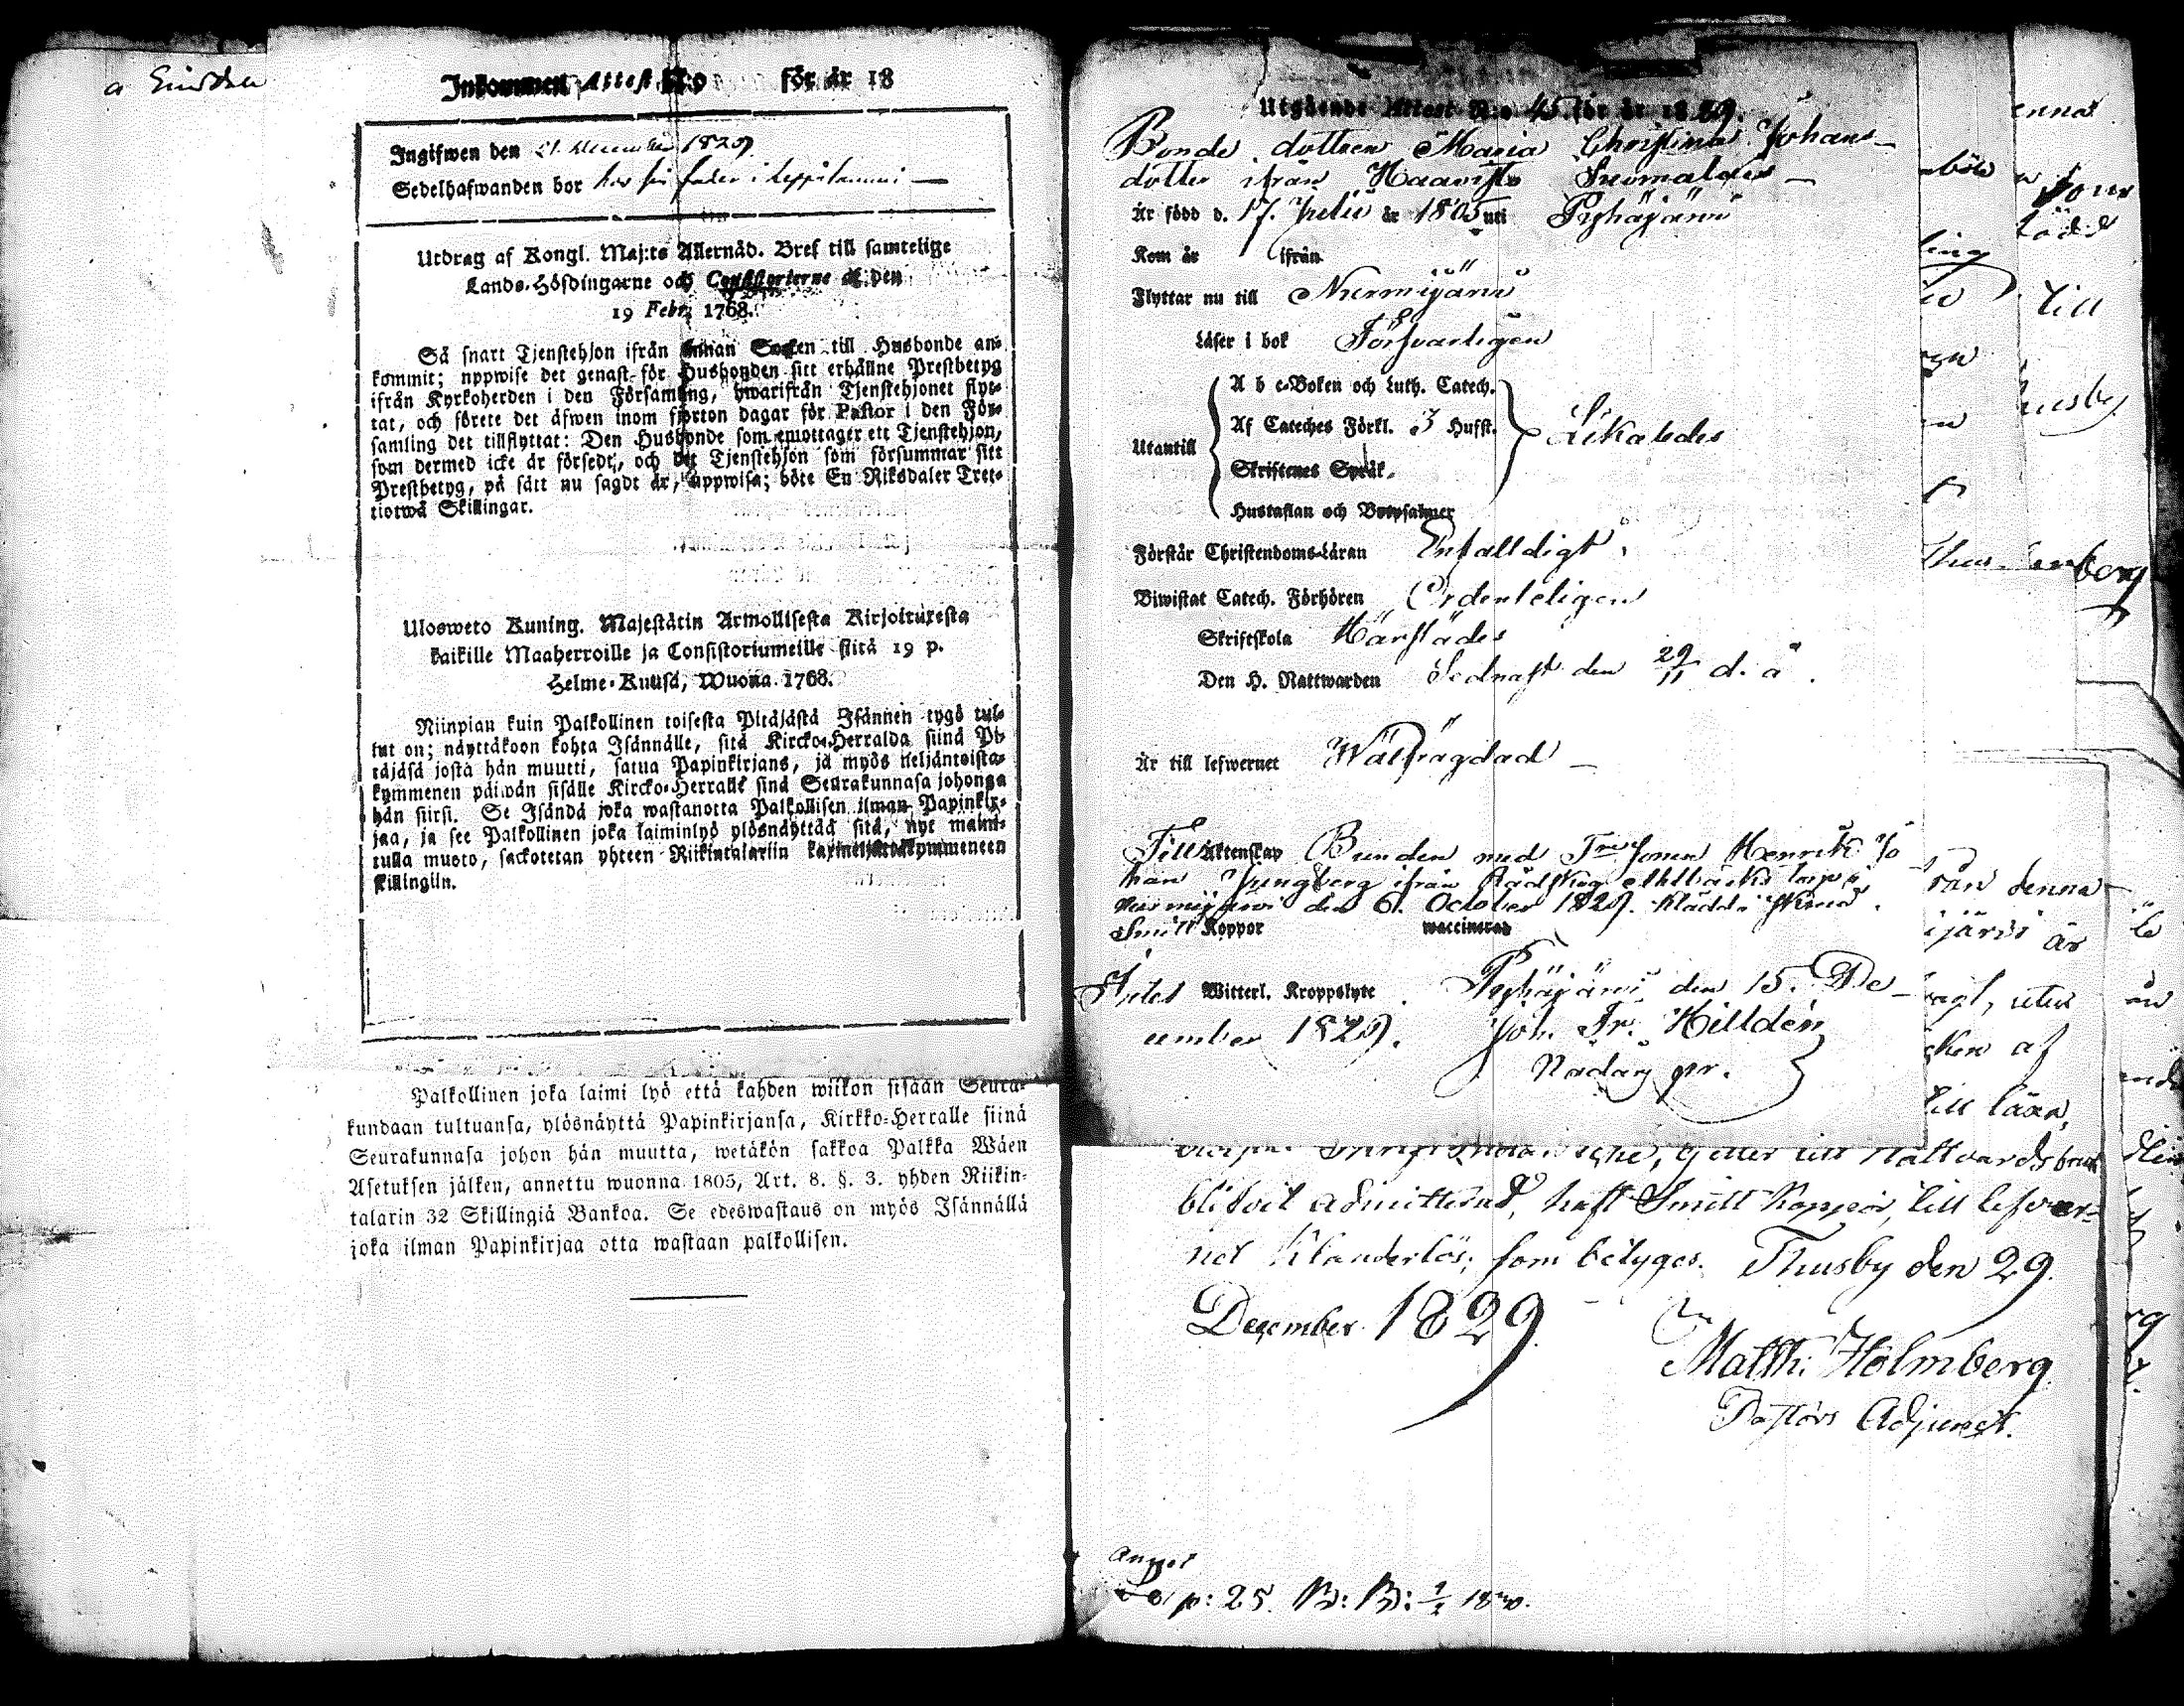 Inkommen Attest N:o för år 18
Ingifwen den 21 December 1829
Sedelhafwanden bor hos sin fader i Leppilammi
Utdrag af Kongl. Maj:ts Allernåd. Bref till samtelige
Lands-Höfdingarne och Consistorierne af den
19 Febr. 1768.
Så snart Tjenstehjon ifrån annan Socken till Husbonde an-
kommit; uppwise det genast för Husbonden sitt erhållne Prestbetyg
ifrån Kyrkoherden i den Församling, hwarifrån Tjenstehjonet flyt-
tat, och förete det äfwen inom fjorton dagar för Pastor i den För-
samling det tillflyttat: Den Husbonde som emottager ett Tjenstehjon,
som dermed icke är försedt, och det Tjenstehjon som försummar sitt
Prestbetyg, på sätt nu sagdt är, uppwisa; böte En Riksdaler Tret-
tiotwå Skillingar.
Ulosweto Kuning. Majestätin Armollisesta Kirjoituxesta
kaikille Maaherroille ja Consistoriumeille siitä 19 p.
Helme-Kuusa, Wuona 1768.
Niinpian kuin Palkollinen toisesta Pitäjästä Isännen tygö tul-
lut on; näyttäkoon kohta Isännälle, sitä Kircko-Herralda siinä Pi-
täjäsä josta hän muutti, satua Papinkirjans, ja myös neljäntoista-
kymmenen päiwän sisälle Kircko-Herralle sinä Seurakunnasa johonga
hän siirsi. Se Isändä joka wastanotta Palkollisen ilman Papinkir-
jaa, ja see Palkollinen joka laiminlyö ylösnäyttää sitä, nyt maini-
tulla muoto, sackotetan yhteen Riikintalariin kaxineljättäkymmeneen
skillingiin.
Palkollinen joka laimi lyö että kahden wiikon sisään Seura-
kundaan tultuansa, ylösnäyttä Papinkirjansa, Kirkko-Herralle siinä
Seurakunnasa johon hän muutta, wetäkön sakkoa Palkka Wäen
Asetuksen jälken, annettu wuonna 1805, Art. 8. §. 3. yhden Riikin-
talarin 32 Skillingiä Bankoa. Se edeswastaus on myös Isännällä
joka ilman Papinkirjaa otta wastaan palkollisen.
Utgående Attest N:o 45 för år 1829.
Bonde dottren Maria Christina Johans-
dotter ifrån Haavisto Suomalais
Är född d. 17. Julii år 1805 uti Pyhäjärvi
Kom år ifrån
Flyttar nu till Nurmijärvi
Läser i bok Försvarligen
Utantill
A b c-Boken och Luth. Catech.
Af Cateches Förkl. 3 Hufst.
Skriftenes Språk.
Hustaflan och Botpsalmer
Likaledes
Förstår Christendoms-Läran Enfalldigt
Biwistat Catech. Förhören Ordenteligen
Skriftskola Härstädes
Den H. Nattwarden Sednast den 29/11 d. å.
Är till lefwernet Wälfrägdad
Till Äktenskap Bunden med Torp Sonen Henrik Jo
han Jungberg ifrån
Nurmijärvi den 6. October 1829.
Smitt Koppor waccinerad
Intet Witterl. Kroppslyte. Pyhäjärvi den 15. De-
cember 1829. Joh. Fr. Hilldén
Nådårs pr.
blifvit admitterad, haft Smitt Koppor, till lefver-
net klanderlös; som betyges. Thusby den 29.
December 1829.
Matth. Holmberg
Pastors Adjunct.
p: 25. B: B: 1830.
enna
Sone
född
till
husby
berg
från denna
ijärvi är
cken af
till lära,